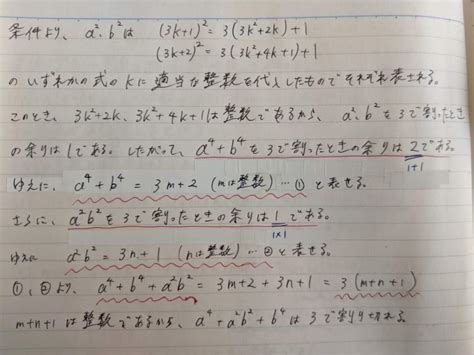 条件より、a²、b²は (3k+1)² = 3(3k²+2k)+1
(3k+2)² = 3(3k²+4k+1)+1
のいずれかの式のkに適当な整数を代入したものでそれぞれ表される。
このとき、3k²+2k、3k²+4k+1は整数であるから、a²、b²を3で割ったとき
の余りは1である。したがって、a⁴+b⁴を3で割ったときの余りは2である。
1+1
ゆえに、a⁴+b⁴ = 3m+2 (mは整数)…① と表せる。
さらに、a²b²を3で割ったときの余りは1である。
1×1
ゆえに a²b² = 3n+1 (nは整数)…② と表せる。
①、②より、a⁴+b⁴+a²b² = 3m+2+3n+1 = 3(m+n+1)
m+n+1は整数であるから、a⁴+a²b²+b⁴は3で割り切れる。